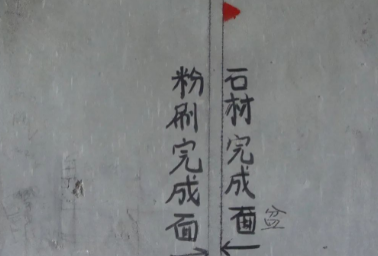 石材完成面
粉刷完成面